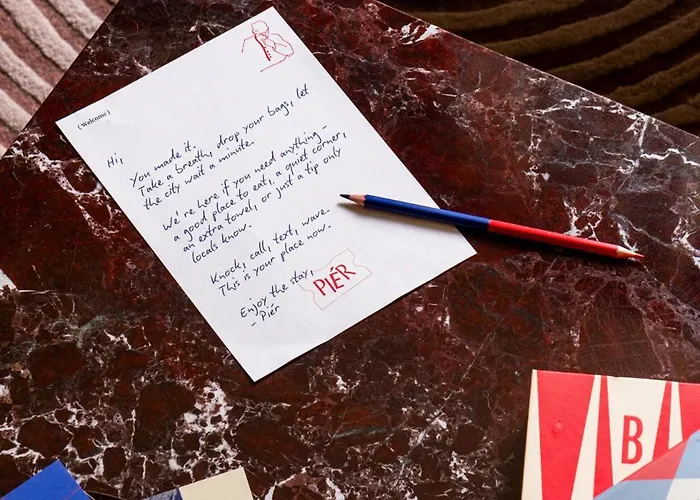 (Welcome)
Hi,
You made it.
Take a breath, drop your bags, let
the city wait a minute.
We're here if you need anything –
a good place to eat, a quiet corner,
an extra towel, or just a tip only
locals know.
Knock, call, text, wave.
This is your place now.
Enjoy the stay,
- Piér
PIÉR
B